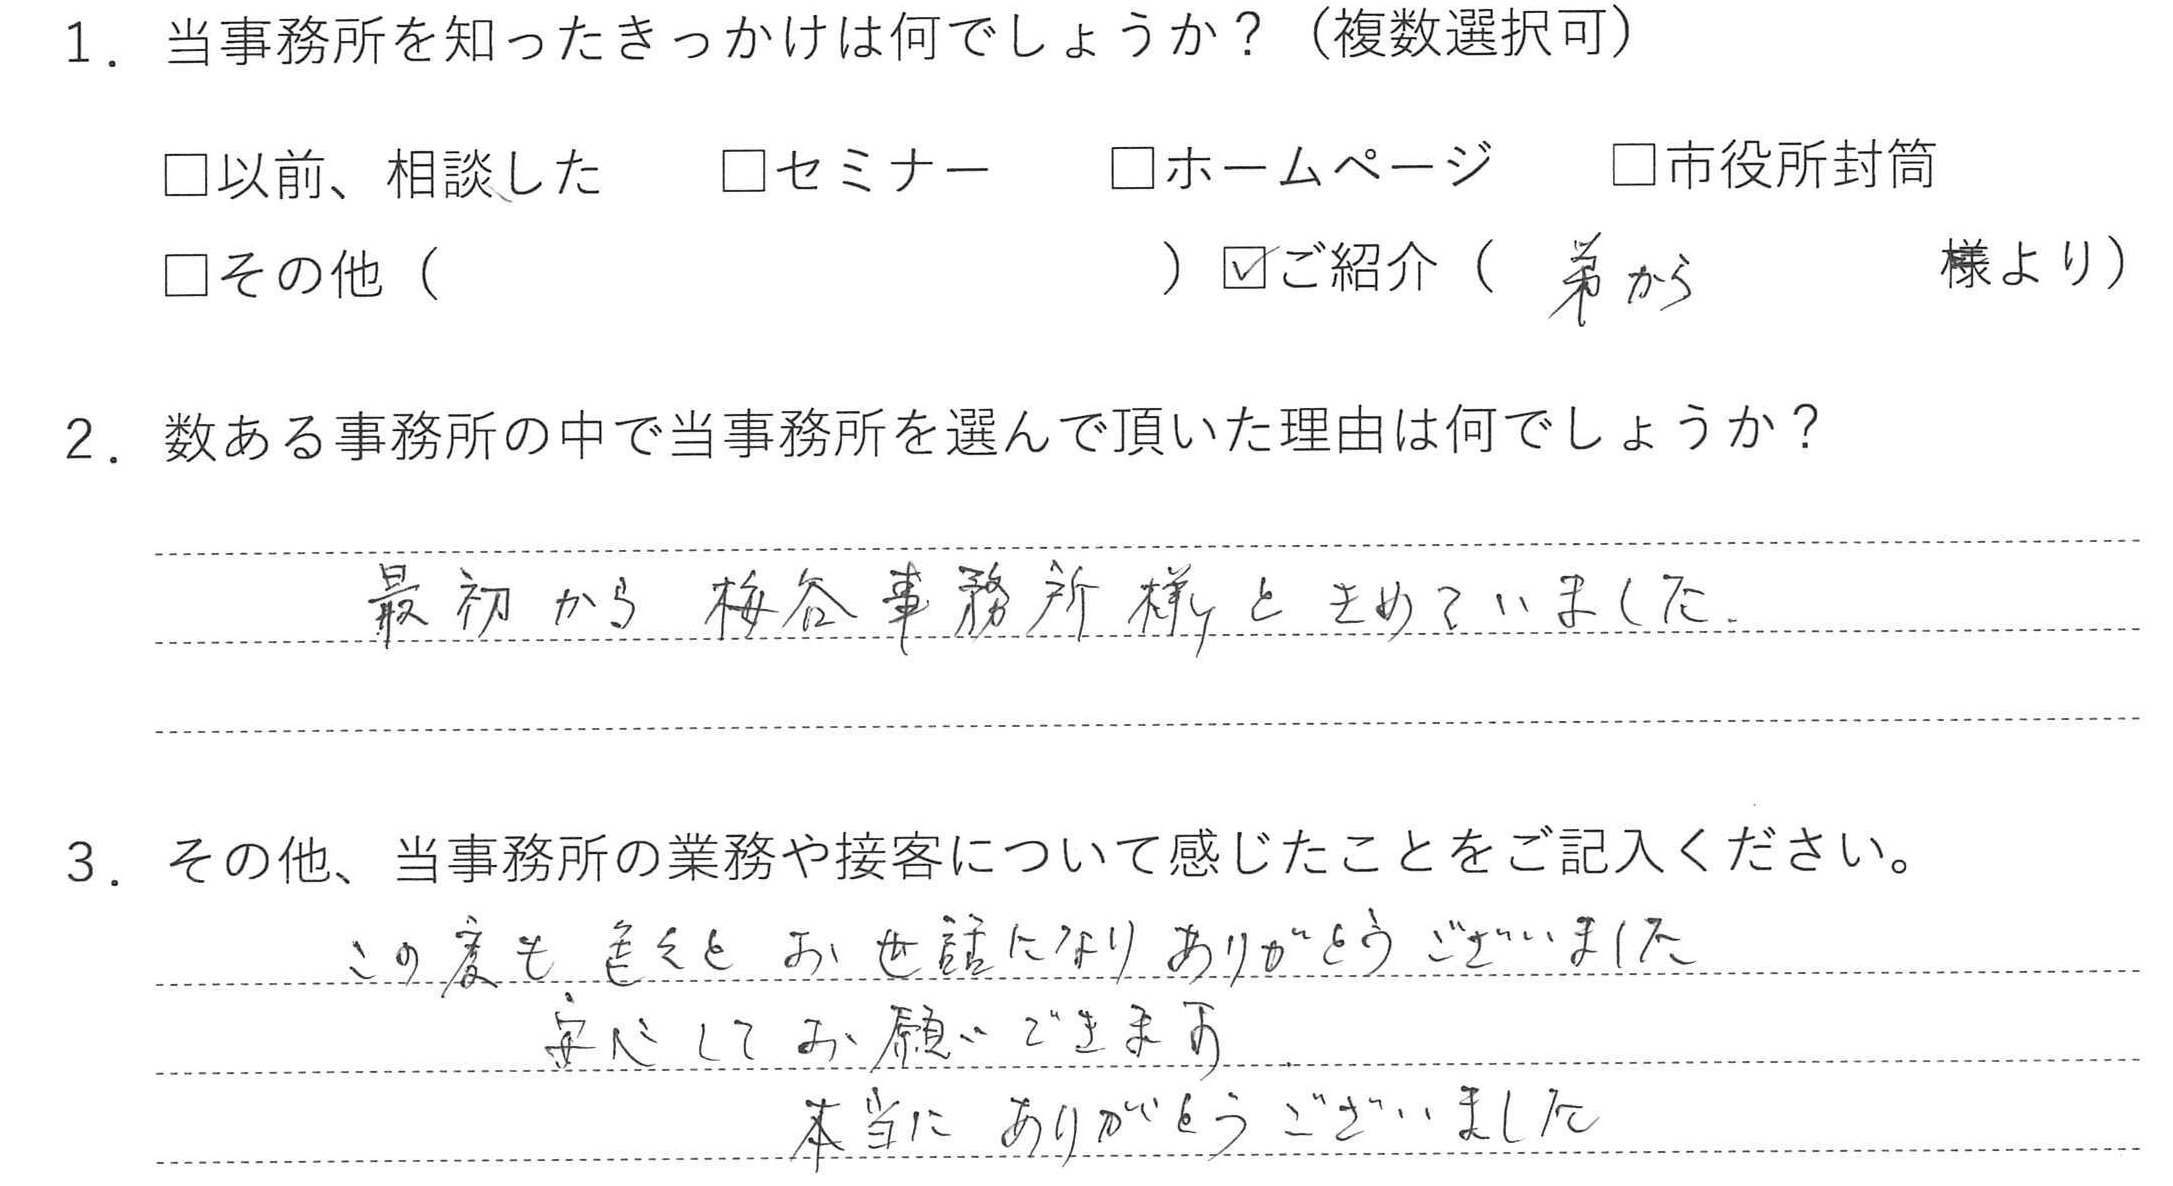 1．当事務所を知ったきっかけは何でしょうか？（複数選択可）
□以前、相談した　□セミナー　□ホームページ　□市役所封筒
□その他（　　　　　　　）☑ご紹介（　弟から　　　様より）
2．数ある事務所の中で当事務所を選んで頂いた理由は何でしょうか？
最初から 梅谷事務所様と きめていました.
3．その他、当事務所の業務や接客について感じたことをご記入ください。
この度も 色々と お世話になり ありがとうございました
安心して お願いできます.
本当に ありがとうございました